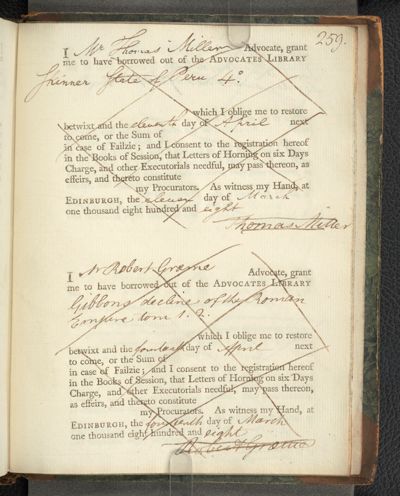 259.
I Mr Thomas Miller Advocate, grant
me to have borrowed out of the ADVOCATES LIBRARY
Skinner State of Peru 4o.
which I oblige me to restore
betwixt and the eleventh day of April next
to come, or the Sum of
in case of Failzie; and I consent to the registration hereof
in the Books of Session, that Letters of Horning on six Days
Charge, and other Executorials needful, may pass thereon, as
effeirs, and thereto constitute
my Procurators. As witness my Hand, at
EDINBURGH, the eleven day of March
one thousand eight hundred and eight
Thomas Miller
I Mr Robert Græme Advocate, grant
me to have borrowed out of the ADVOCATES LIBRARY
Gibbons decline of the Roman
Empire tom 1. 2.
which I oblige me to restore
betwixt and the fourteenth day of April next
to come, or the Sum of
in case of Failzie; and I consent to the registration hereof
in the Books of Session, that Letters of Horning on six Days
Charge, and other Executorials needful, may pass thereon,
as effeirs, and thereto constitute
my Procurators. As witness my Hand, at
EDINBURGH, the fourteenth day of March
one thousand eight hundred and eight
Robert Græme